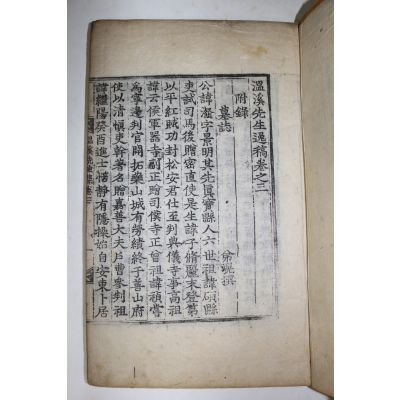 溫溪先生逸稿卷之三
附錄
墓誌 徐崐撰
公諱瀣字景明其先眞寶縣人六世祖諱碩縣
吏試司馬後贈密直使是生諱子脩麗末登第
以平紅賊功封松安君仕至判典儀寺事高祖
諱云侯軍器寺副正贈司僕寺正曾祖諱禎嘗
爲寧邊判官開拓藥山城有勞績終于善山府
使以清愼吏幹著名贈嘉善大夫戶曹參判祖
諱繼陽癸酉進士恬靜有隱操始自安東卜居